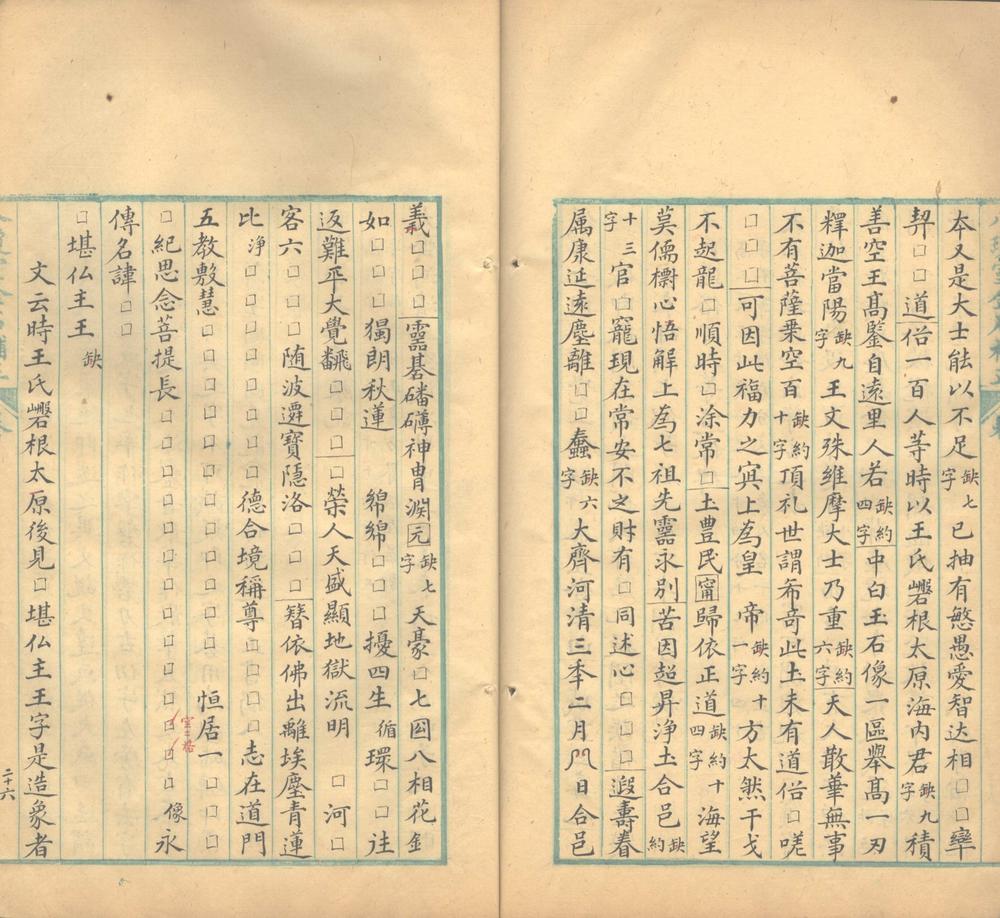 本又是大士能以不足缺七字已抽有慜愚愛智达相□□率
契□□道俗一百人等時以王氏礕根太原海内君缺九字積
善空王髙鑒自遠里人若缺約四字中白玉石像一區舉髙一刃
釋迦當陽缺九字王文殊維摩大士乃重缺約六字天人散華無事
不有菩薩乗空百缺約十字頂礼世謂希奇此土未有道俗□嗟
□□□可因此福力之㝠上為皇帝缺約一字十方太煞干戈
不起龍□順時□涂常□土豊民甯歸依正道缺約四字十海望
莫儒櫥心悟解上為七祖先靈永別苦因超昇浄土合邑缺約
十三字官□寵現在常安不之財有□同述心□□□□遐壽眷
属康延遠塵離□□蠢缺六字大齊河清三秊二月日合邑
義□□□□靈基磻礡神曺渕元缺七字天豪□七囯八相花金
如□□□獨朗秋蓮綿綿□□□擾四生循環□□往
返難平大覺飜□□□□榮人天盛顯地獄流明□河□
客六□□随波遷寳隱洛□□□簪依佛出離埃塵青蓮
比浄□□□□□□德合境稱尊□□□□志在道門
五教敷慧□□□□□□□□恒居一□□□
□紀思念菩提長□□□□□□□□□□像永
空二格
傳名諱□□
□堪仏主王缺
文云時王氏礕根太原後見□堪仏主王字是造象者
二十六